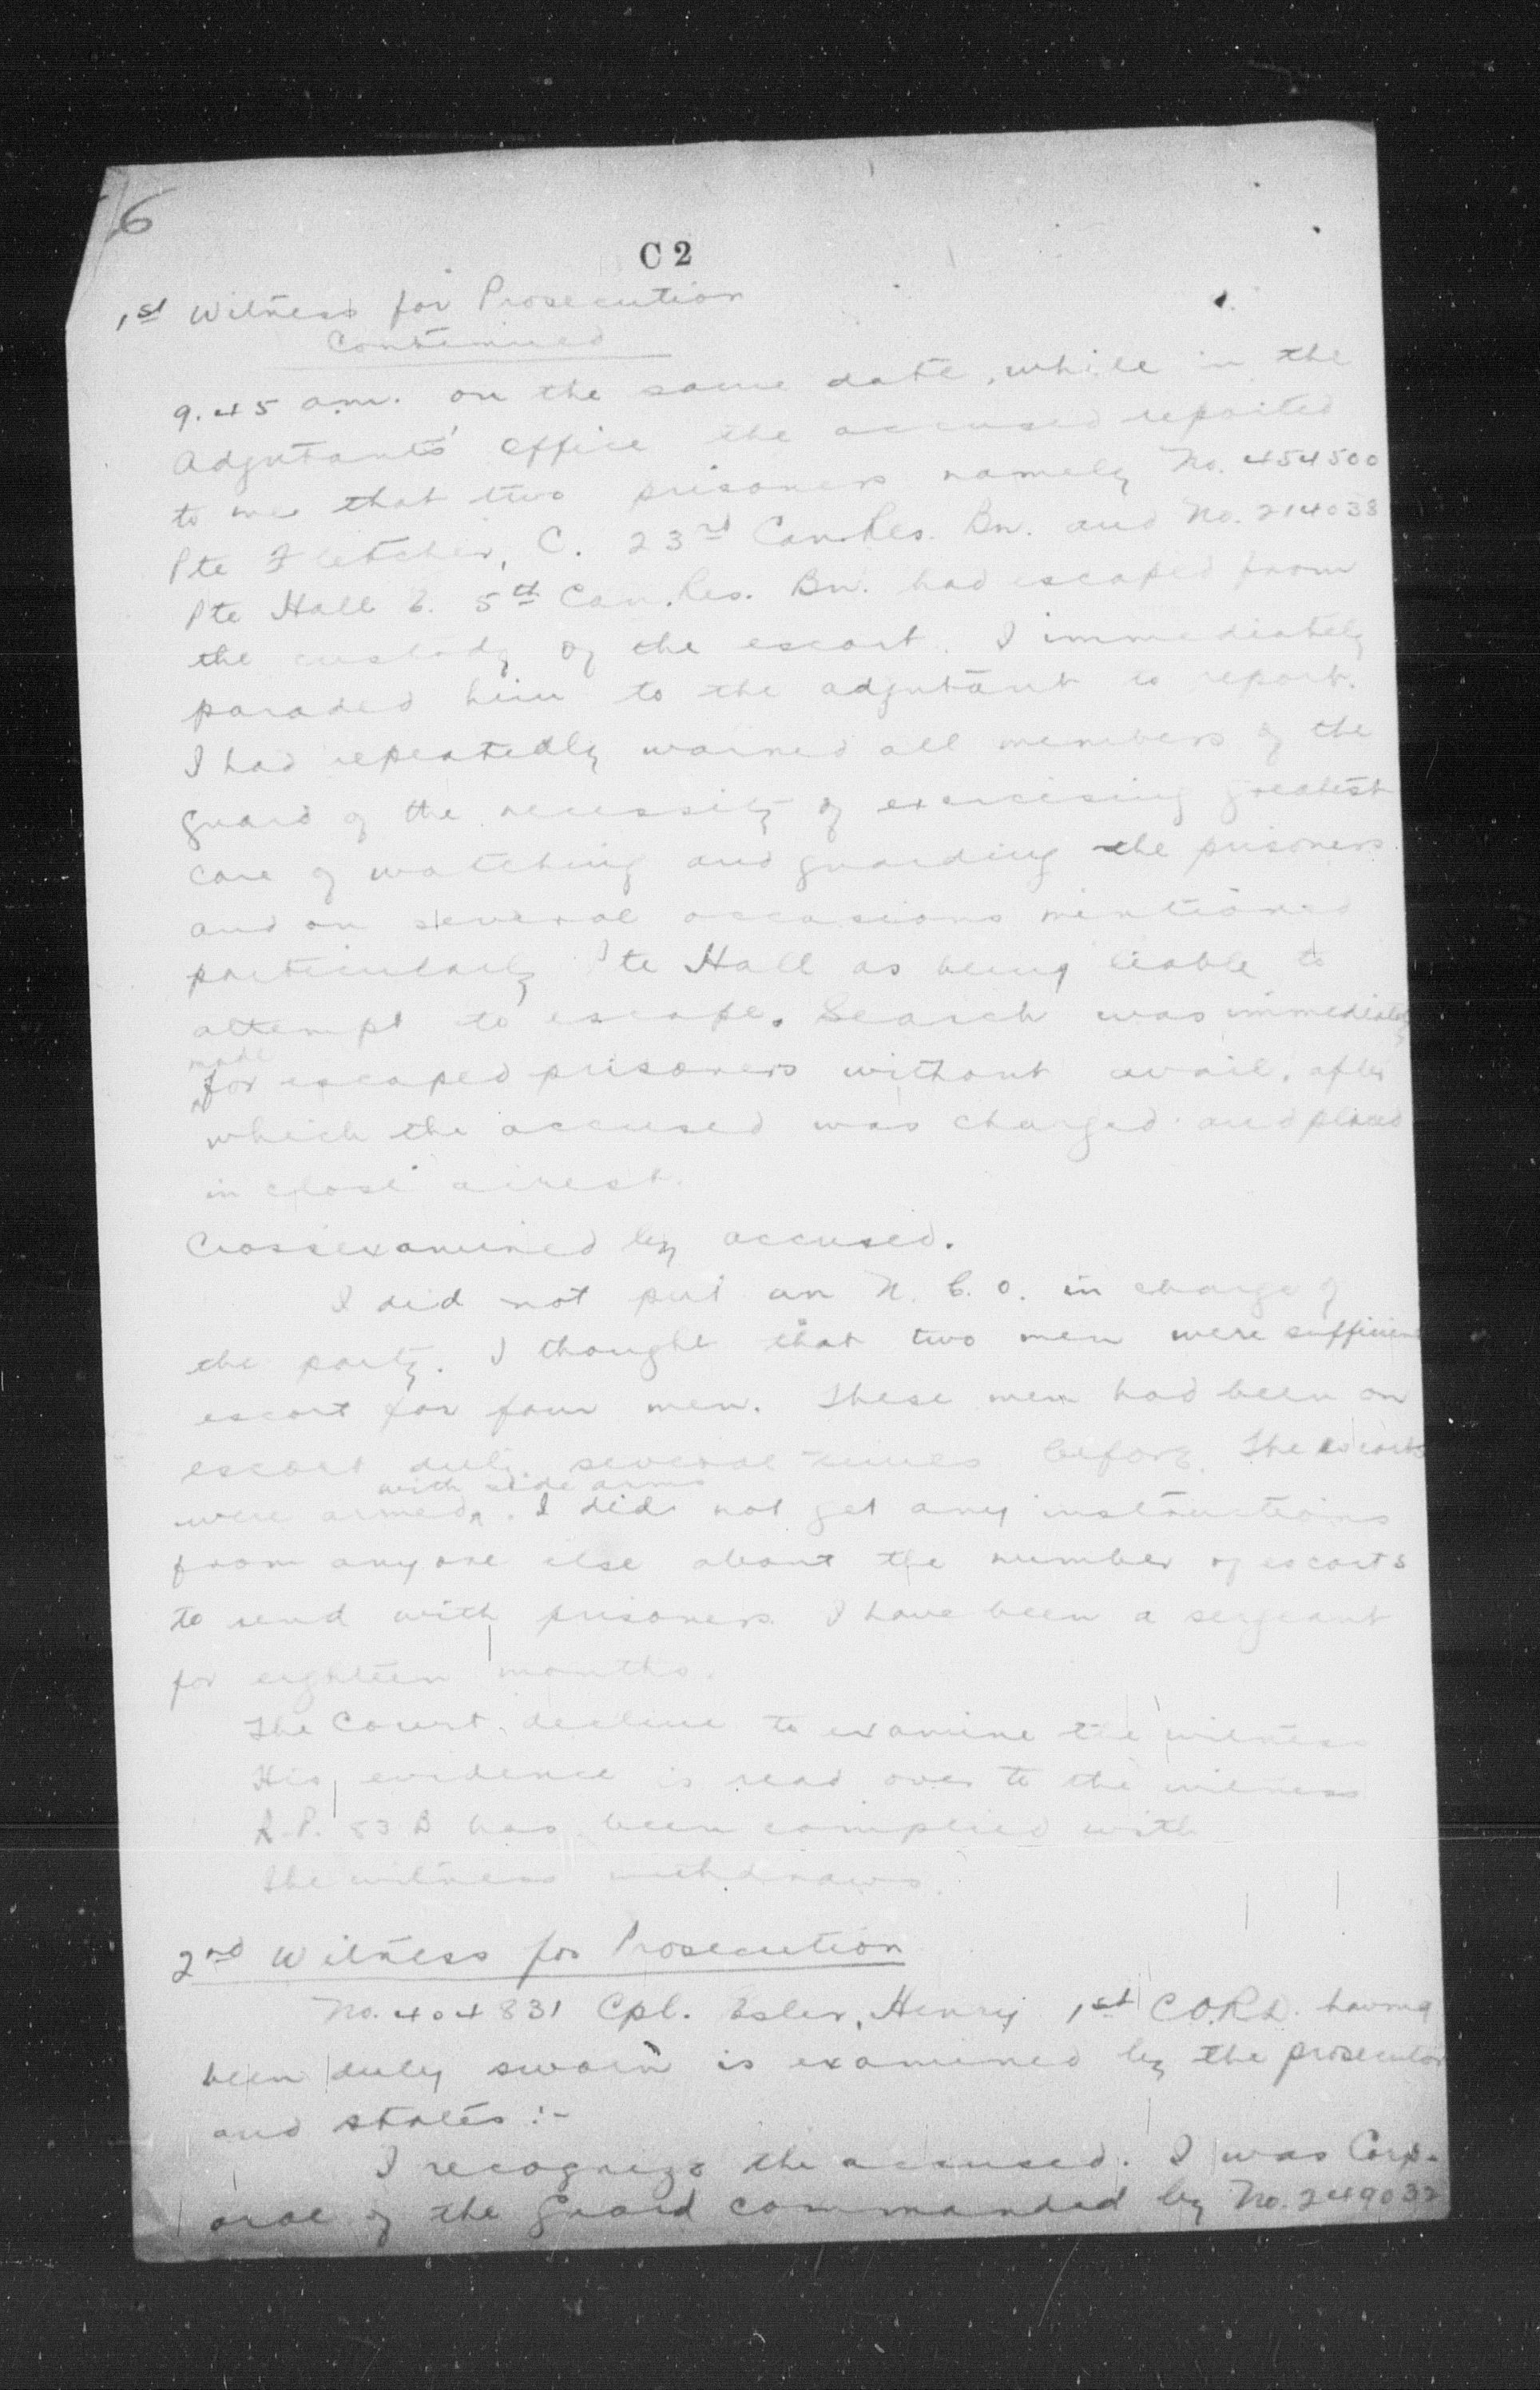 6
C 2
1st Witness for Prosecution
Continued
9.45 a.m. on the same date, while in the
Adjutant's Office the accused reported
to me that two prisoners namely No. 454500
Pte Fletcher, C. 23rd Can. Res. Bn. and No. 214038
Pte Hall E. 5th Can. Res. Bn. had escaped from
the custody of the escort. I immediately
paraded him to the adjutant to report.
I had repeatedly warned all members of the
guard of the necessity of exercising greatest
care of watching and guarding the prisoners
and on several occasions mentioned
particularly Pte Hall as being liable to
attempt to escape. Search was immediately
made
for escaped prisoners without avail, after
which the accused was charged and placed
in close arrest.
Crossexamined by accused.
I did not put an N.C.O. in charge of
the party. I thought that two men were sufficient
escort for four men. These men had been on
escort duty several times before. The escorts
with side arms
were armed. I did not get any instructions
from anyone else about the number of escorts
to send with prisoners I have been a sergeant
for eighteen months.
The Court decline to examine the witness
His evidence is read over to the witness
R.P. 83 B has been complied with
The witness withdraws.
2nd Witness for Prosecution
No. 404831 Cpl. Esler, Henry 1st C.O.R.D. having
been duly sworn is examined by the prosecutor
and states :-
I recognize the accused. I was Corp-
oral of the Guard commanded by No. 249032